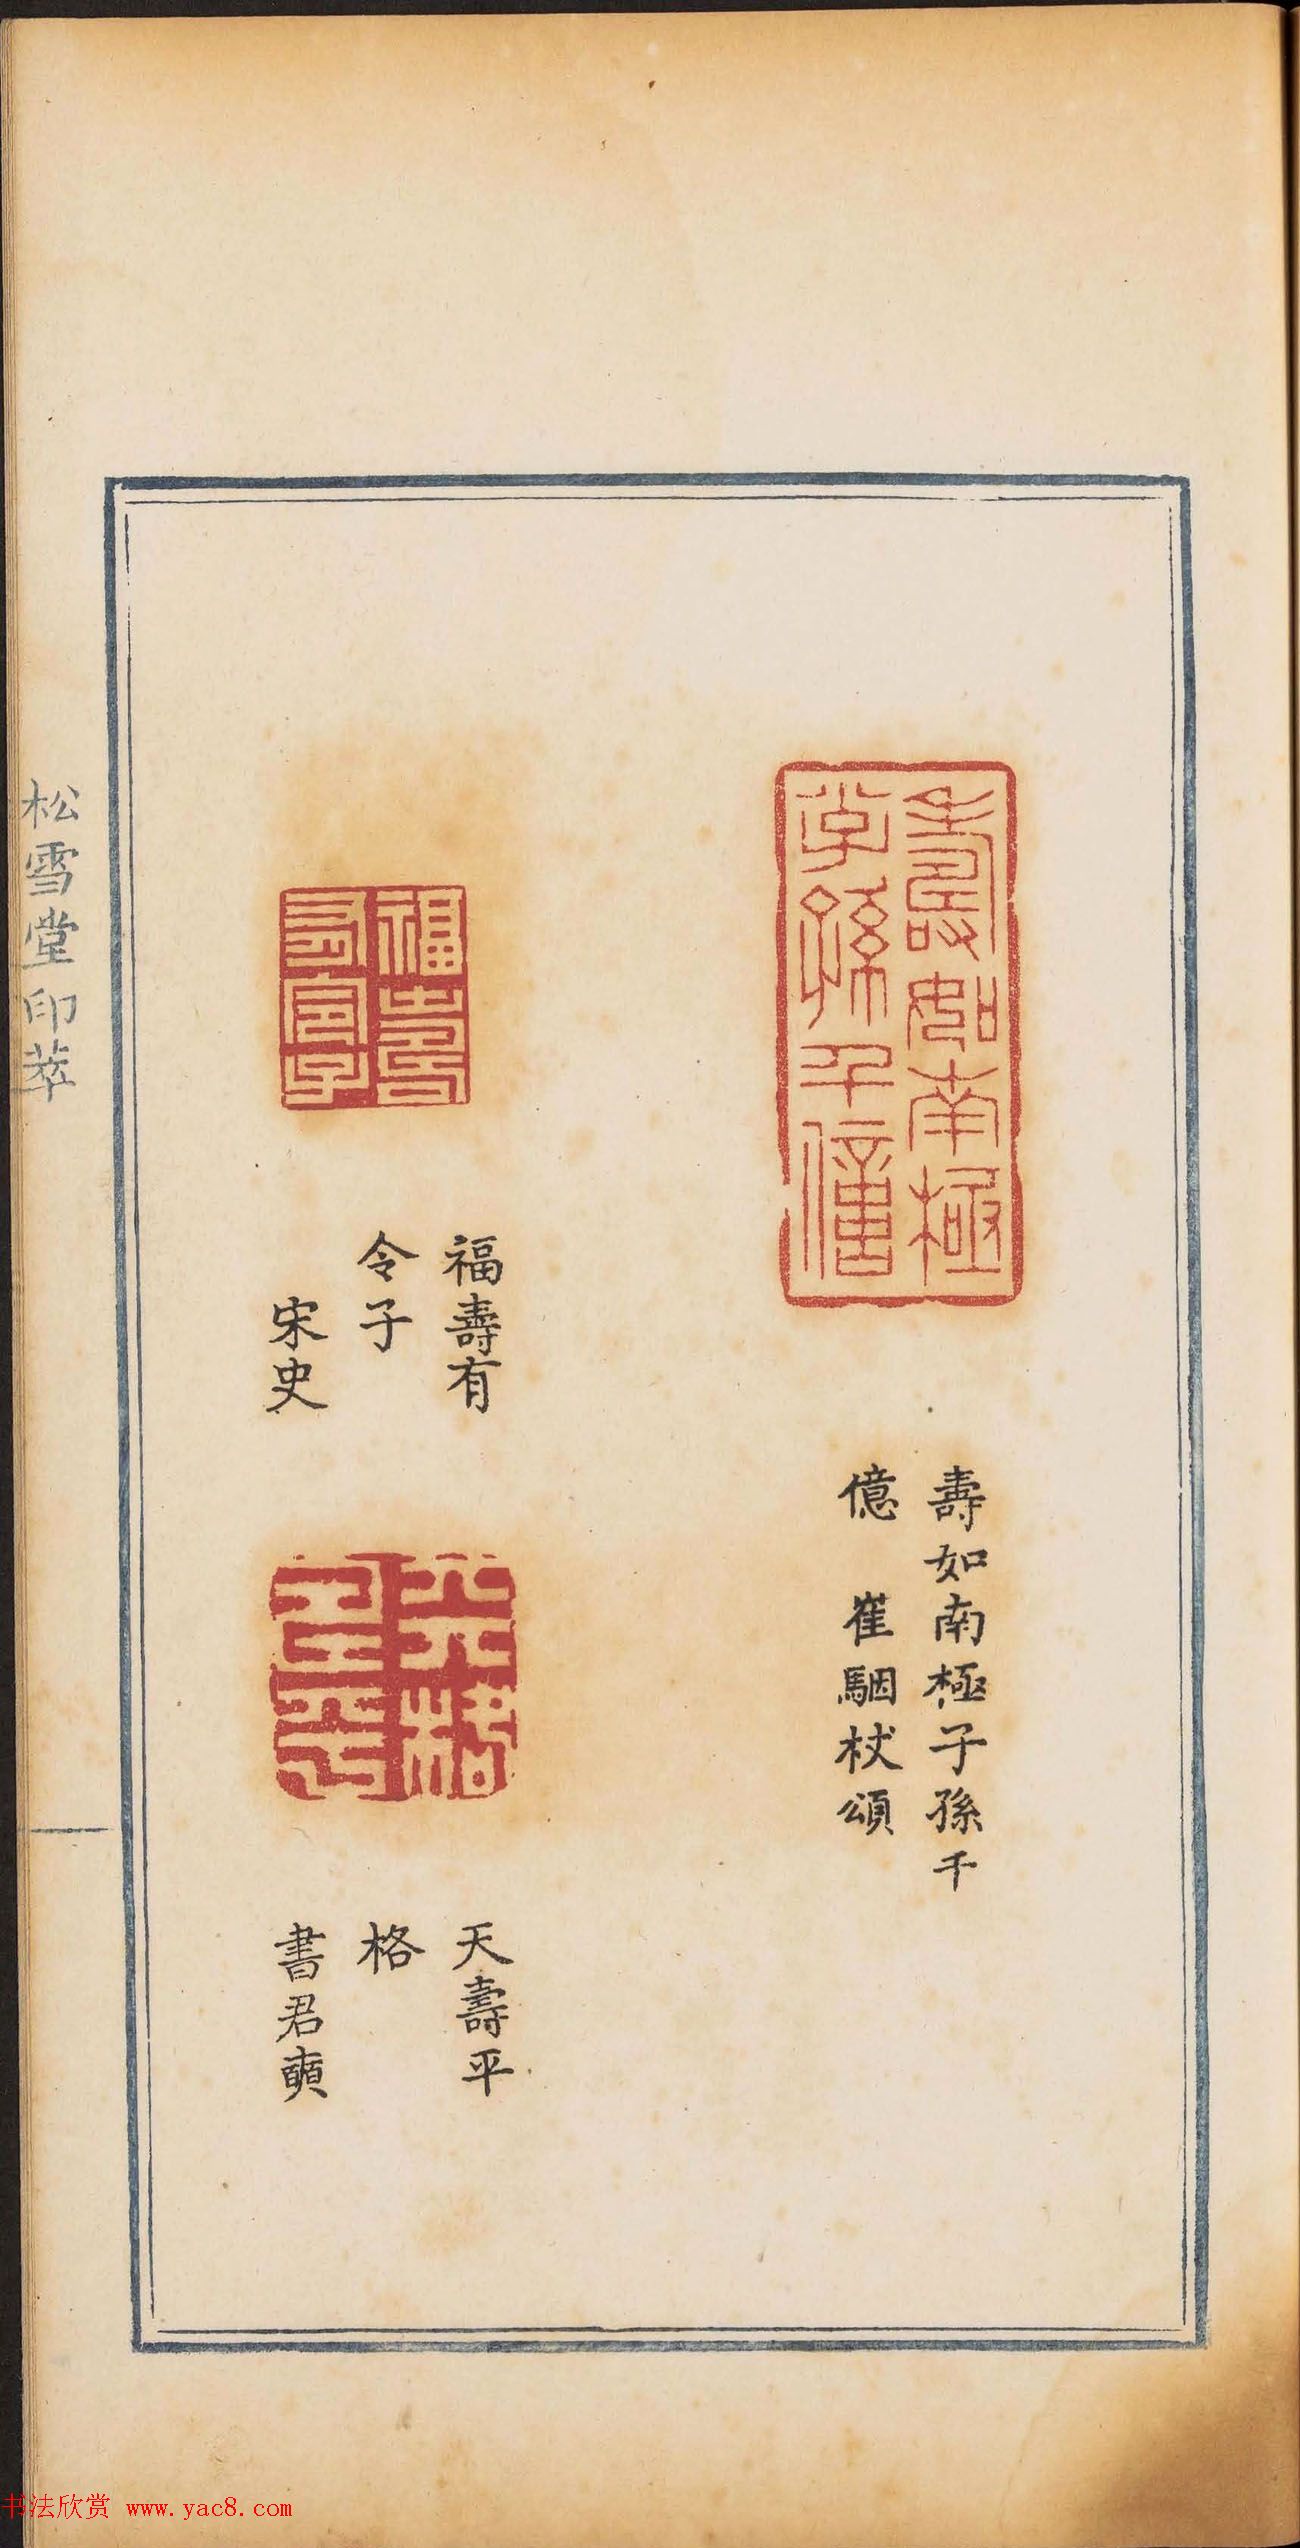 壽如南極
子孫千億
壽如南極子孫千
億　崔駰杖頌
福壽
有令子
福壽有
令子
宋史
天格
壽平
天壽平
格
書君奭
松雪堂印萃
书法欣赏 www.yac8.com